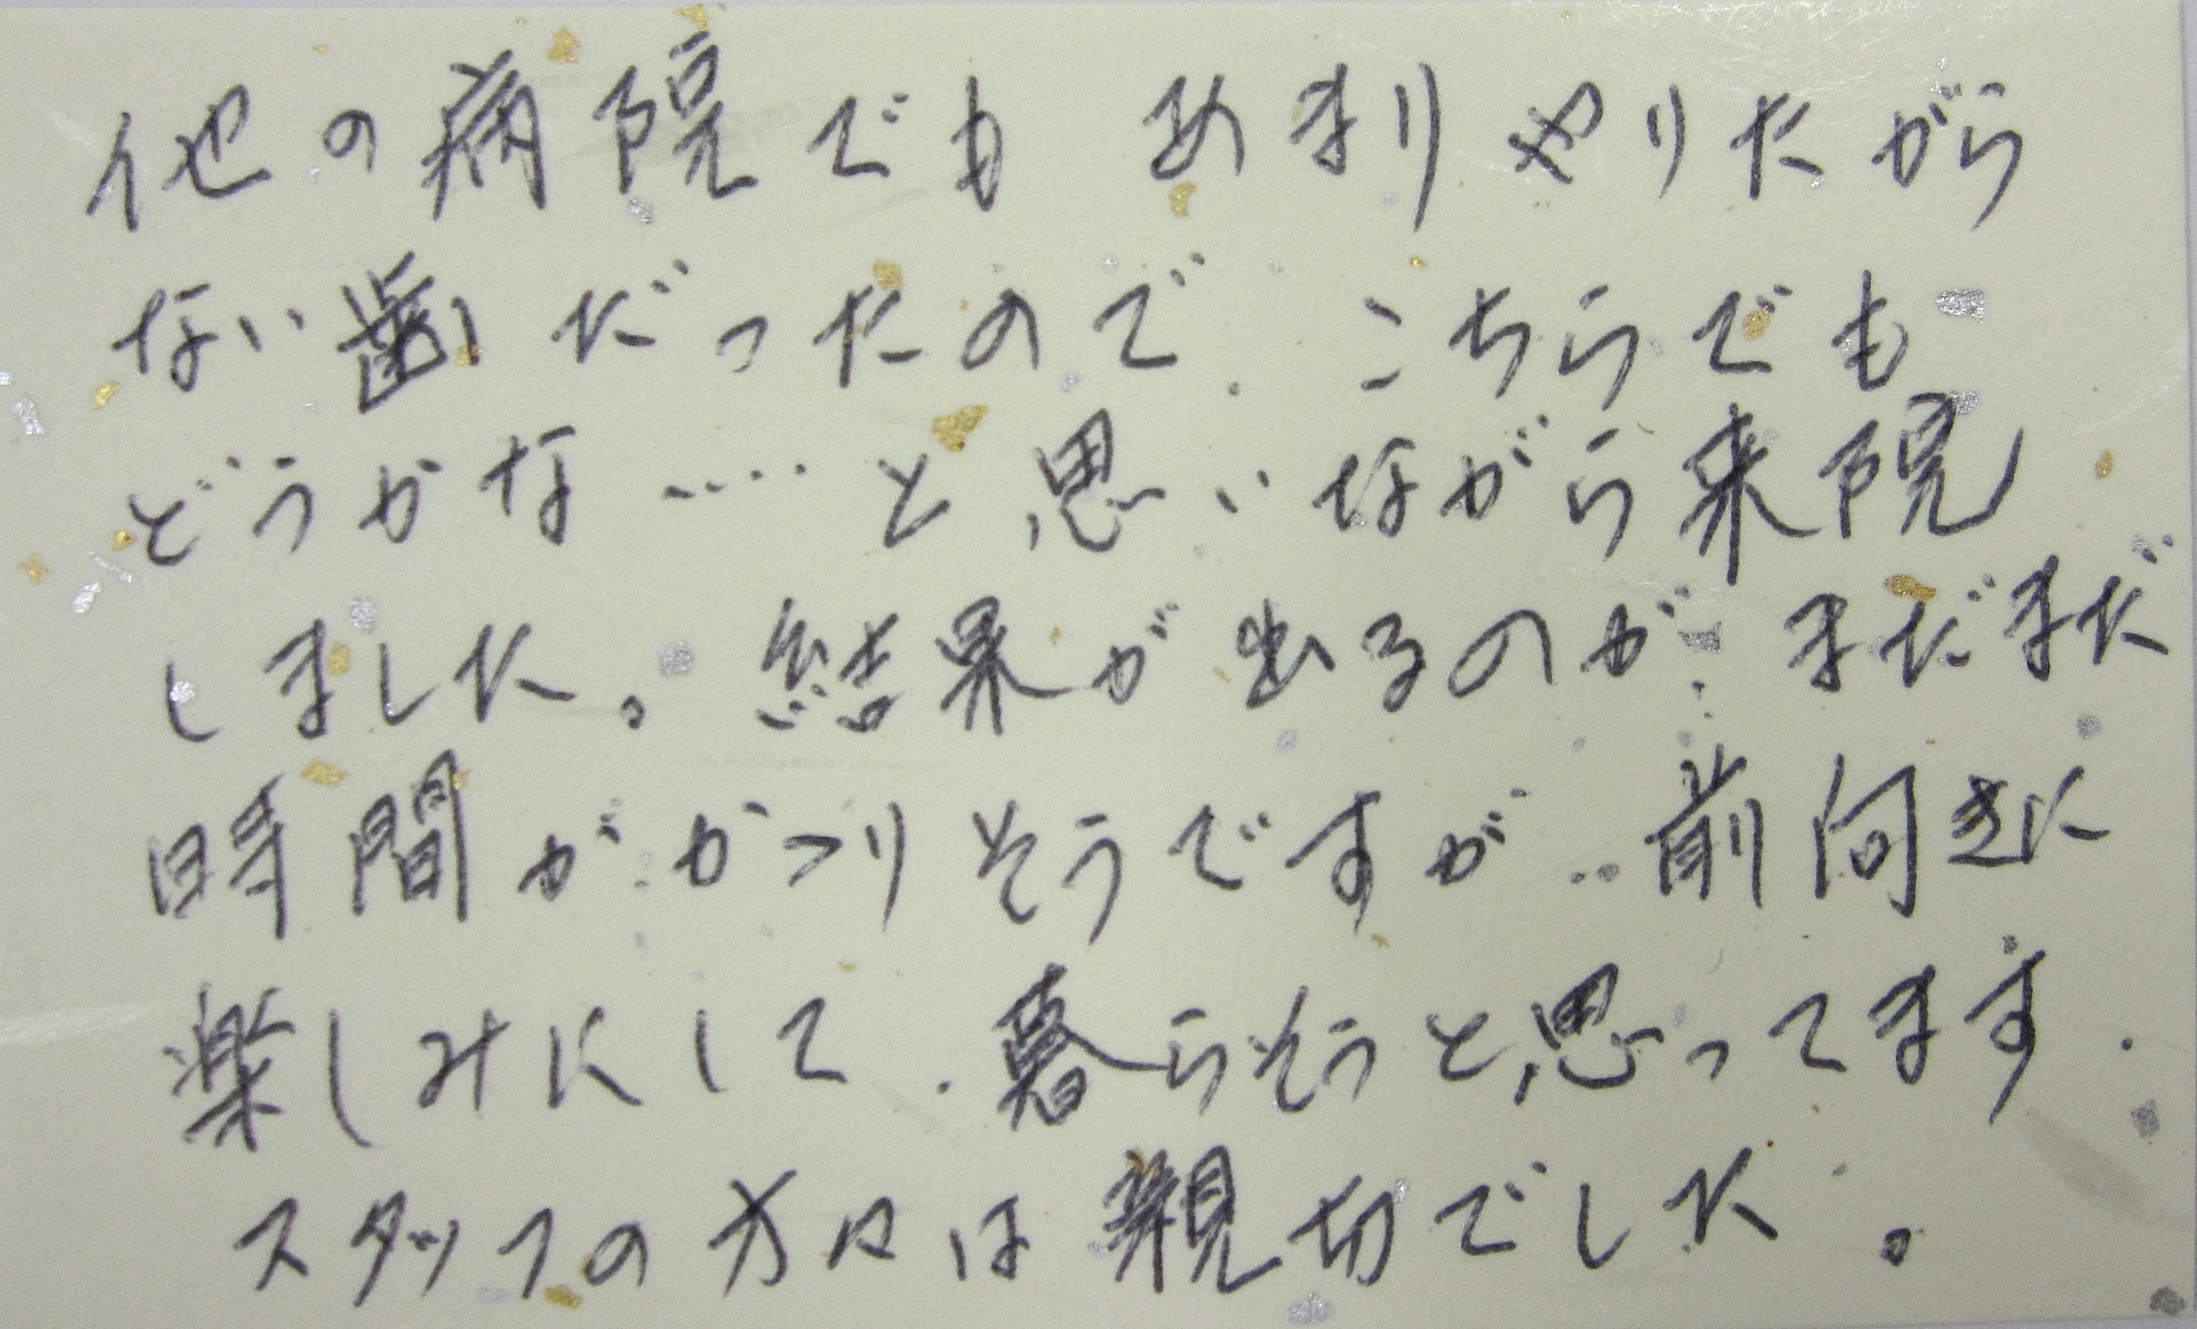 他の病院でも あまりやりたがら
ない歯だったので、こちらでも
どうかな‥‥と思いながら来院
しました。結果が出るのが、まだまだ
時間がかかりそうですが、前向きに
楽しみにして、暮らそうと思ってます.
スタッフの方々は親切でした。